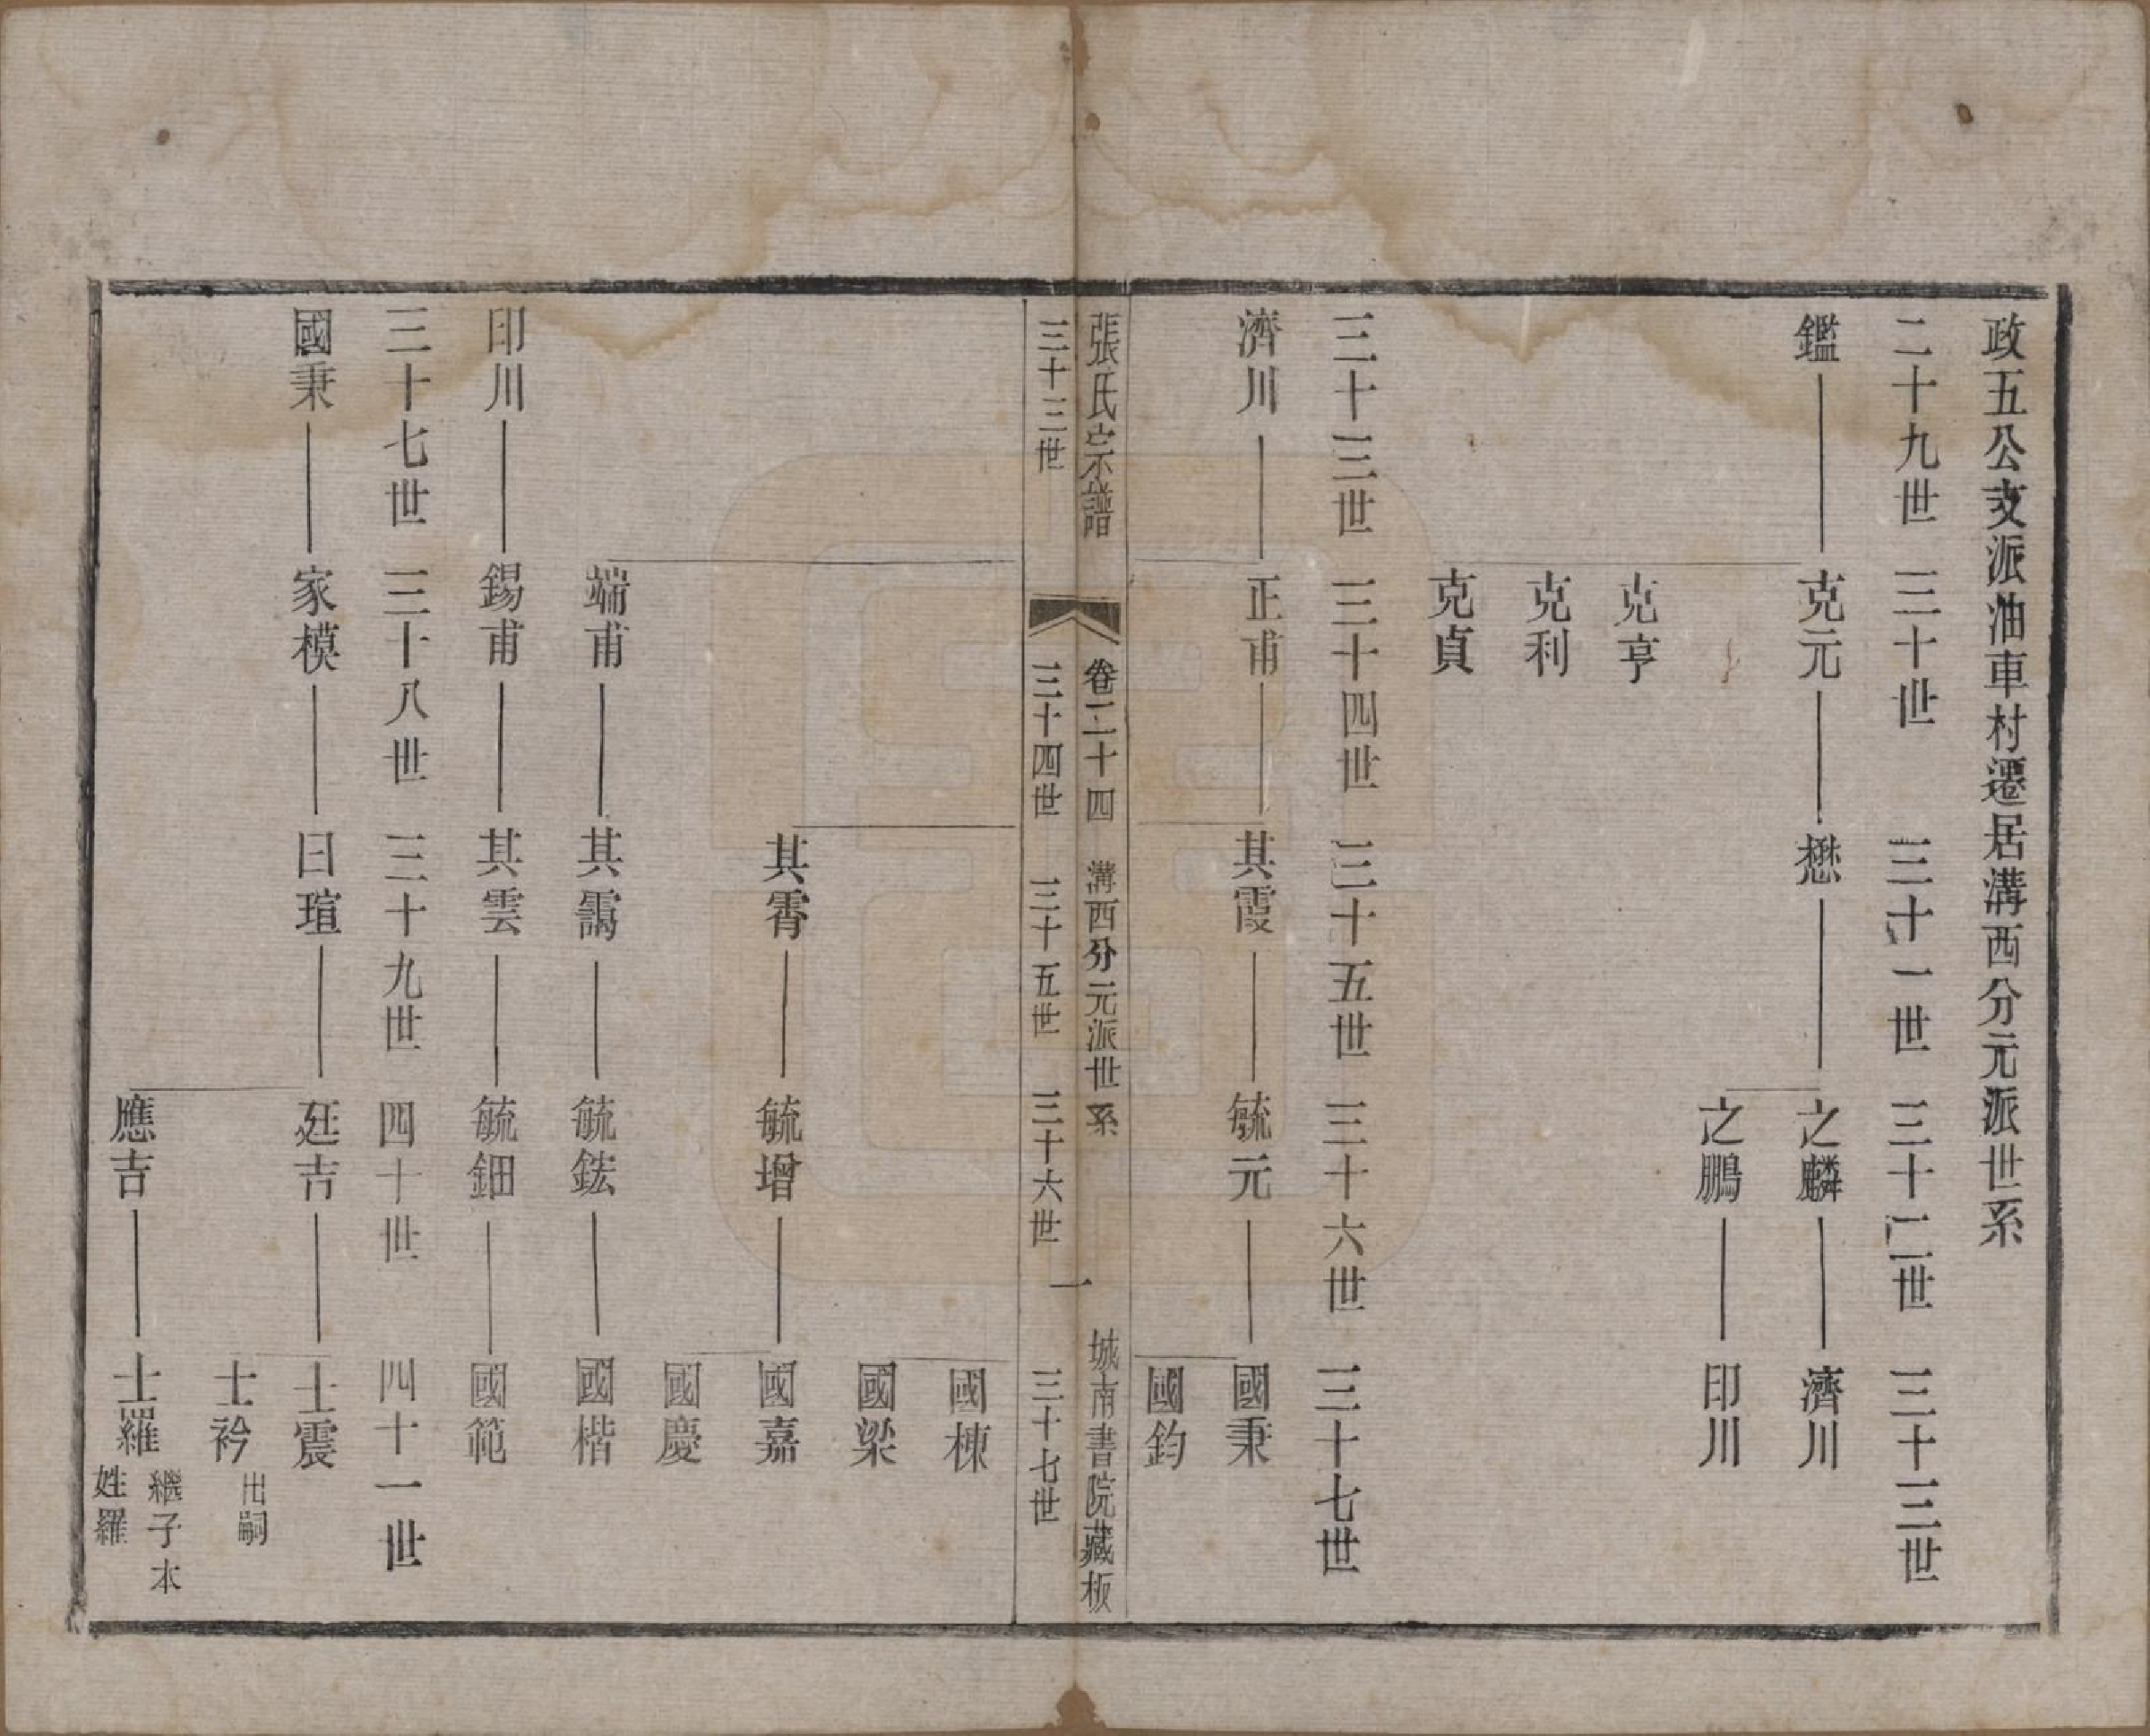 政五公支派油車村遷居溝西分元派世系
二十九世 三十世 三十一世 三十二世 三十三世
鑑 克元 懋 之麟 濟川
之鵬 印川
克亨
克利
克貞
三十三世 三十四世 三十五世 三十六世 三十七世
濟川 正甫 其霞 毓元 國秉
國鈞
張氏宗譜 卷二十四 溝西分元派世系 一 城南書院藏板
三十三世 三十四世 三十五世 三十六世 三十七世
國棟
國梁
其霄 毓增 國嘉
國慶
端甫 其靄 毓鋐 國楷
印川 錫甫 其雲 毓鈿 國範
三十七世 三十八世 三十九世 四十世 四十一世
國秉 家模 曰瑄 廷吉 士震
士衿 出嗣
應吉 士羅 繼子本姓羅